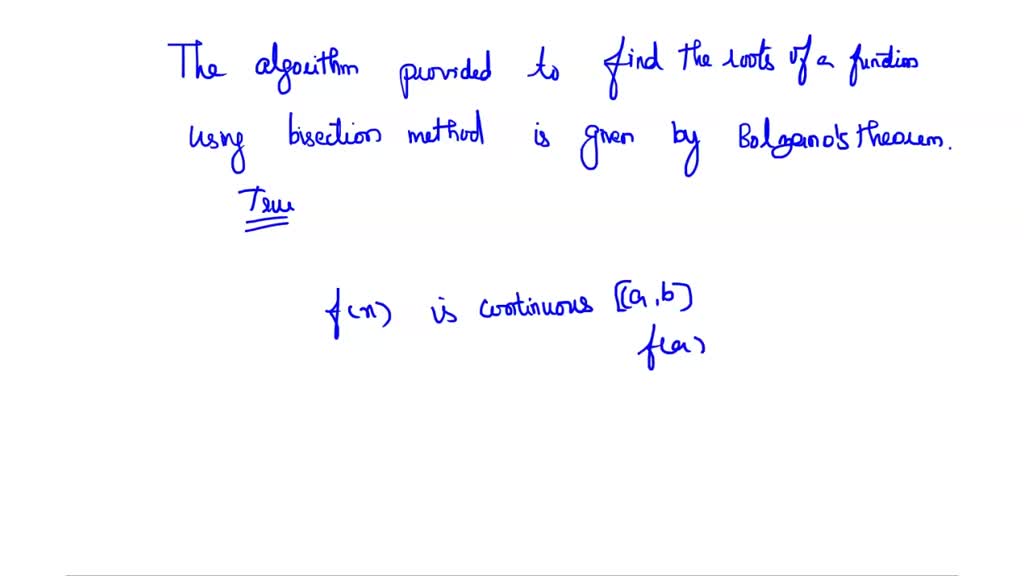 The algorithm provided to find the roots of a function
using bisection method is given by Bolzano's theorem.
True
f(x) is continuous [(a,b)
f(a)